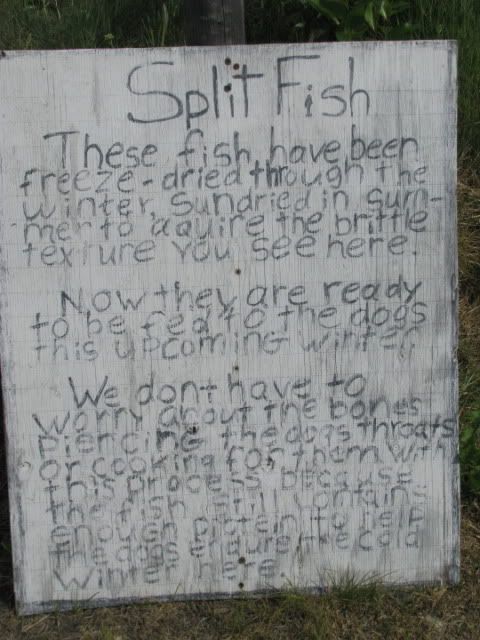 Split Fish
These fish have been
freeze-dried through the
winter, sundried in sum-
mer to aquire the brittle
texture you see here.
Now they are ready
to be fed to the dogs
this upcoming winter.
We dont have to
worry about the bones
piercing the dogs throats
or cooking for them with
this process because
the fish still contains
enough protein to help
the dogs endure the cold
winter here